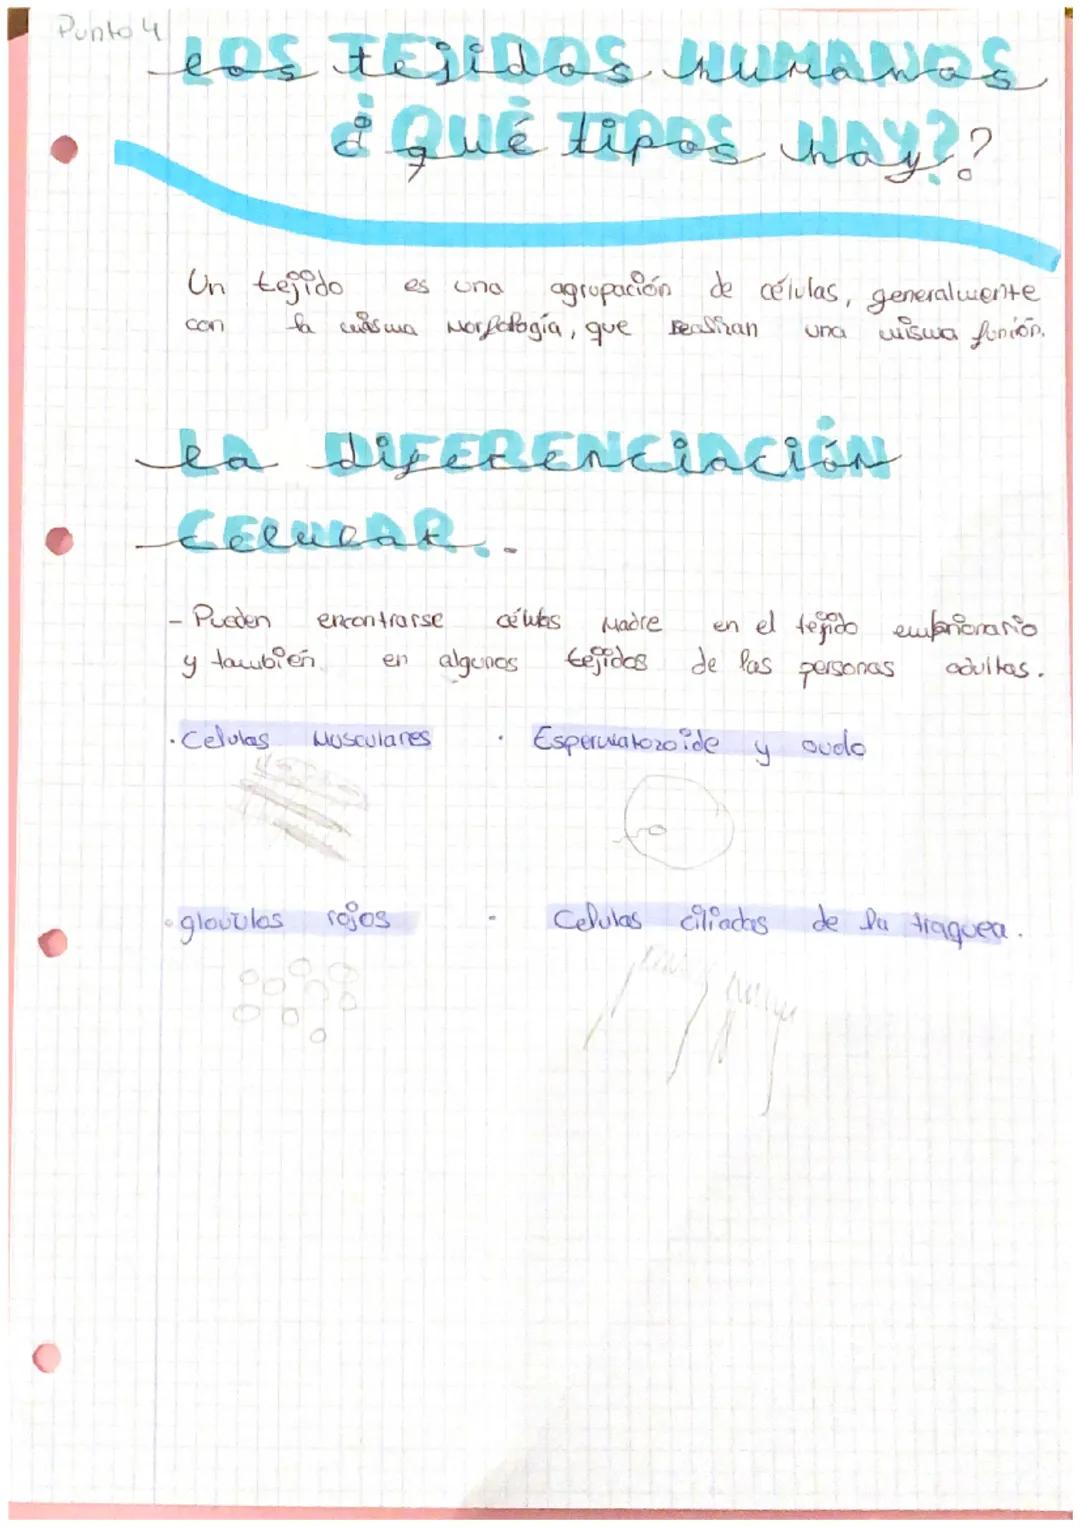 Punto 4
Los tejidos humanos
¿Qué tipos hay?
Un tejido es una agrupación de células, generalmente
con la misma morfología, que realizan una misma funión.
La diferenciación
celular.
- Pueden encontrarse célubs madre en el tejido embrionario
y también en algunos tejidos de las personas adultas.
· Celulas musculares · Espermatozoide y ovulo
· globulos rojos · Celulas ciliadas de la traquea.